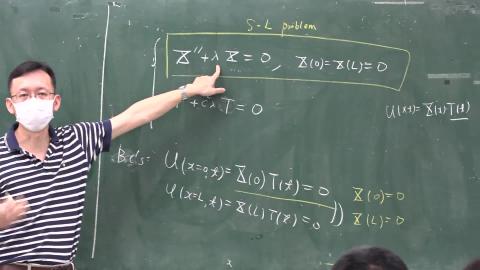 S-L problem
X'' + λX = 0, X(0) = X(L) = 0
+ cλT = 0
u(x,t) = X(x)T(t)
B.C's = u(x=0,t) = X(0)T(t) = 0
X(0) = 0
u(x=L,t) = X(L)T(t) = 0
X(L) = 0